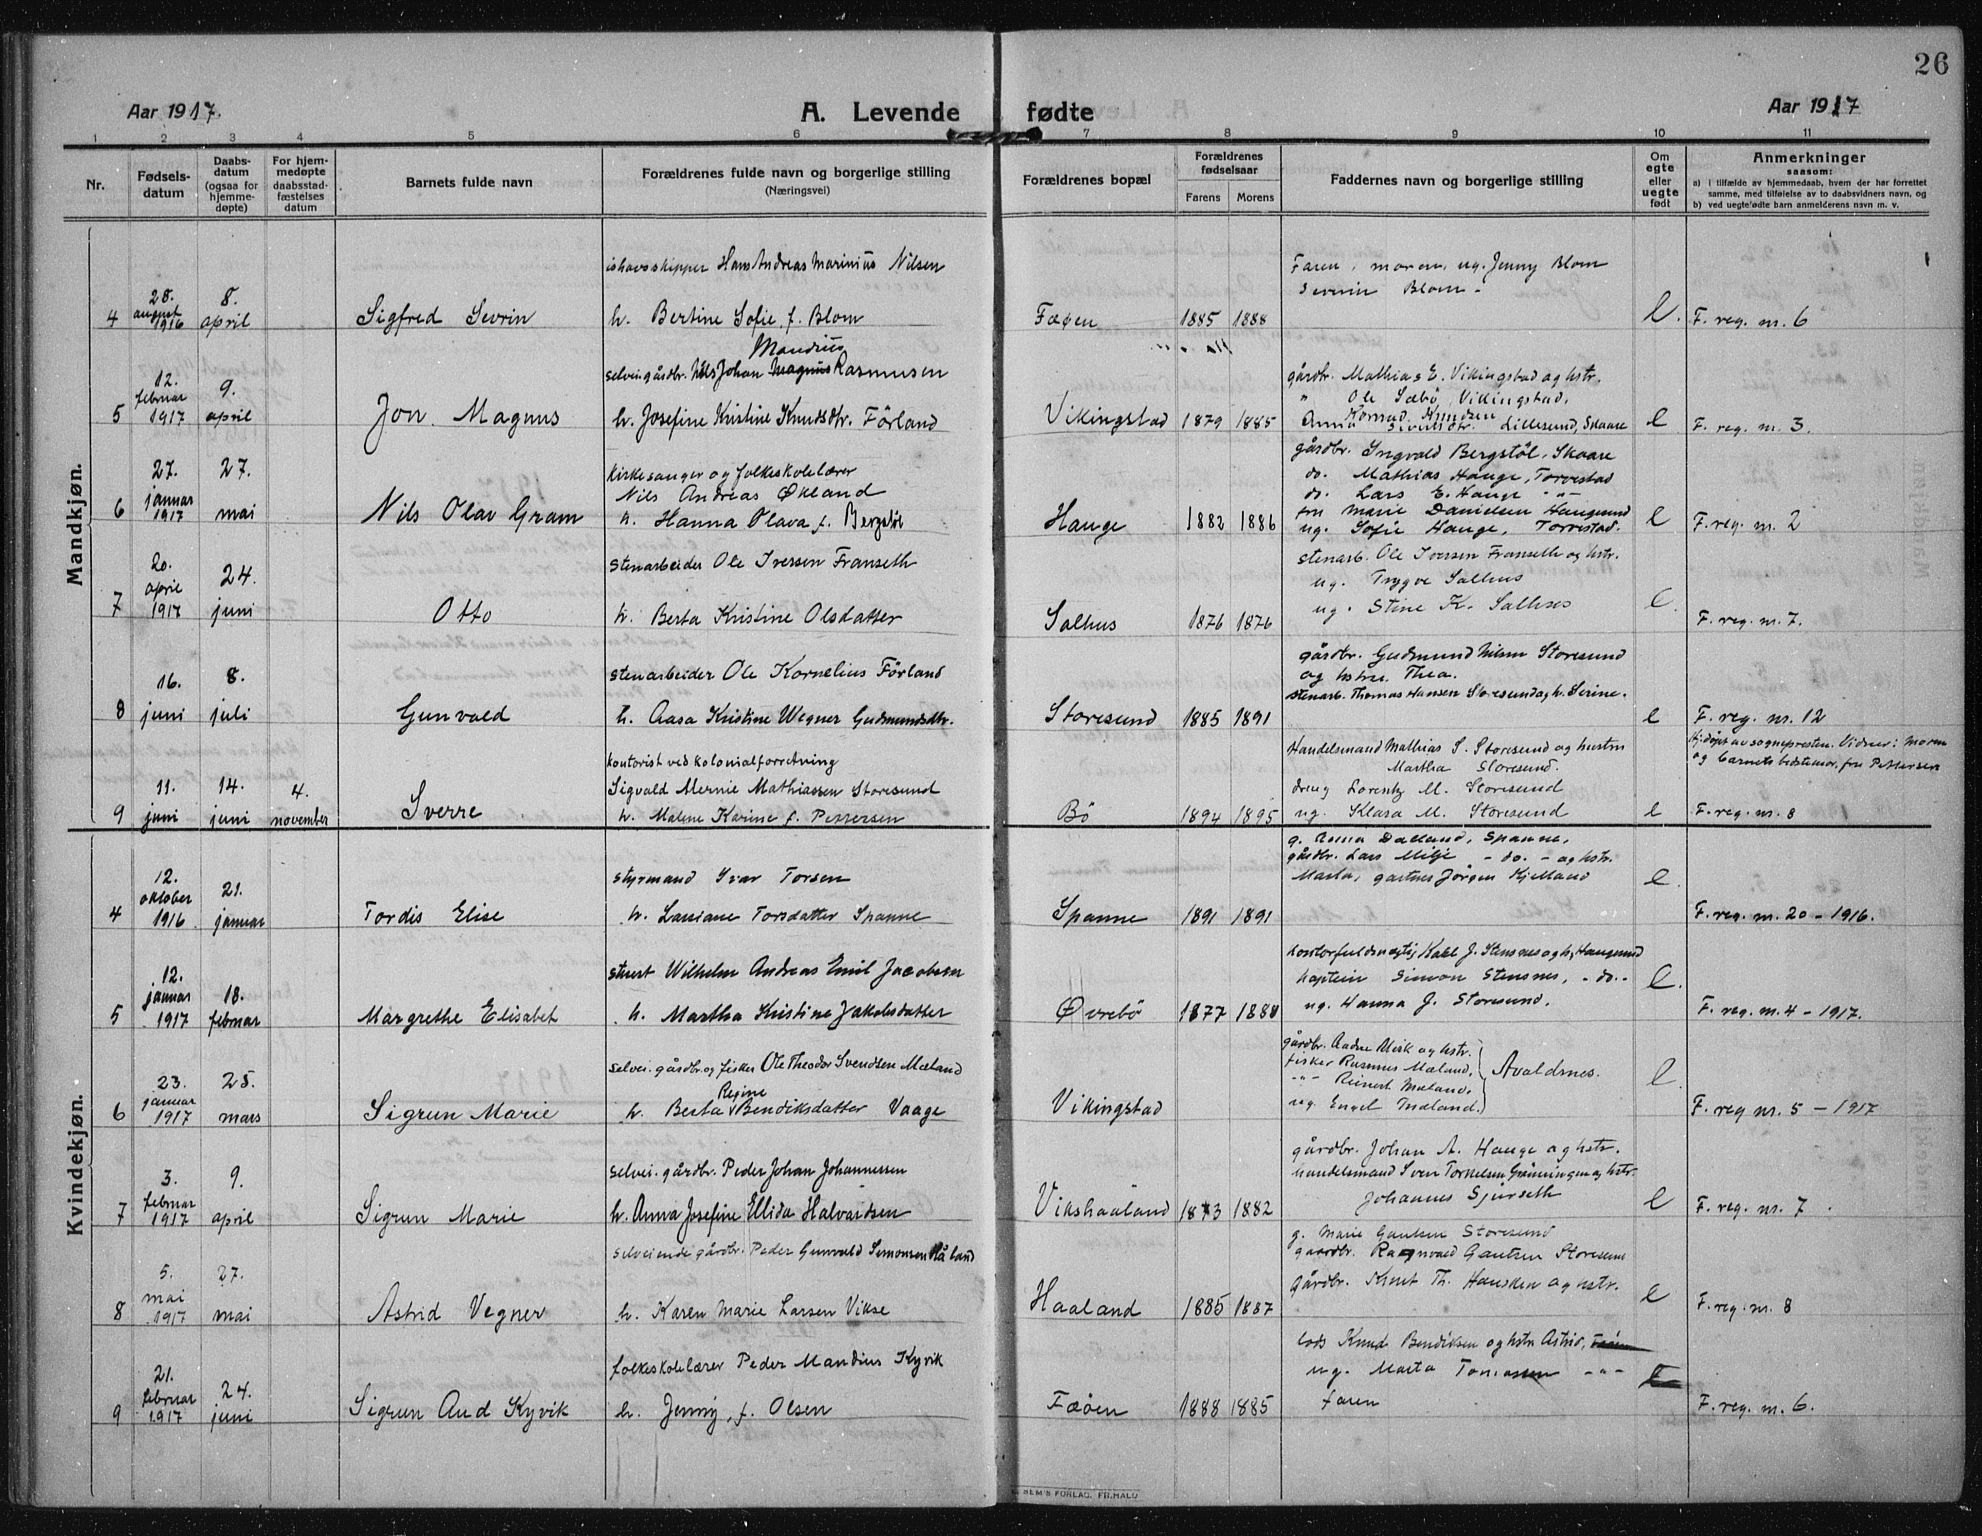 26
Aar 1917.
A. Levende fødte
Aar 1917
1 2 3 4 5 6 7 8 9 10 11
Nr.
Fødsels-
datum
Daabs-
datum
(ogsaa for
hjemme-
døpte)
For hjem-
medøpte
daabsstad-
fæstelses
datum
Barnets fulde navn
Forældrenes fulde navn og borgerlige stilling
(Næringsvei)
Forældrenes bopæl
Forældrenes
fødselsaar
Farens Morens
Faddernes navn og borgerlige stilling
Om
egte
eller
uegte
født
Anmerkninger
saasom:
a) i tilfælde av hjemmedaab, hvem der har forrettet
samme, med tilføielse av to daabsvidners navn, og
b) ved uegtefødte barn anmelderens navn m. v.
Mandkjøn.
ishavsskipper Hans Andreas Marinius Nilsen
Faren, moren, ug. Jenny Blom
Severin Blom
28. 8.
august
4 1916 april Sigfred Sevrin h. Bertine Sofie, f. Blom Fæøen 1885 1888 e. F. reg. nr. 6
Mandius
selvei. gårdbr. Nils Johan Magnus Rasmusen
gårdbr. Mathias E. Vikingstad og hstr.
" Ole Sæbø, Vikingstad,
Konrad Knudsen
12. 9.
februar
5 1917 april Jon Magnus h. Josefine Kristine Knudsdtr. Förland Vikingstad 1879 1885 Anna Lillesund, Skaare e F. reg. nr. 3.
kirkesanger og folkeskolelærer
Nils Andreas Økland
gårdbr. Ingvald Bergstöl, Skaare
do. Mathias Hauge, Torvestad
do. Lars E. Hauge -"-
fru Marie Danielsen Haugesund
27. 27.
januar
6 1917 mai Nils Olav Gram h. Hanna Olava f. Bergstöl Hauge 1882 1886 ug. Sofie Hauge, Torvestad. e F. reg. nr. 2
stenarbeider Ole Iversen Franseth
stenarb. Ole Iversen Franseth og hstr.
ug. Trygve Salhus
ug. Stine K. Salhus
20. 24.
april
7 1917 juni Otto h. Berta Kristine Olsdatter Salhus 1876 1876 e F. reg. nr. 7.
stenarbeider Ole Kornelius Förland
gårdbr. Gudmund Nilsen Storesund
og hstru. Thea.
stenarb. Thomas Hansen Storesund og h. Serine.
16. 8.
8 juni juli Gunvald h. Aasa Kristine Wegner Gudmundsdtr. Storesund 1885 1891 e F. reg. nr. 12
kontorist ved kolonialforretning
Sigvald Mernie Mathiassen Storesund
Handelsmand Mathias S. Storesund og hustru
Martha Storesund.
dreng Lorentz M. Storesund
Hj.døpt av sognepresten. Vidner: Moren
og barnets bedstemor, fru Pettersen
11. 14. 4.
9 juni juni november Sverre h. Malene Karine f. Pettersen Bö 1894 1895 ug. Klara M. Storesund e F. reg. nr. 8
Kvindekjøn.
styrmand Ivar Torsen
g. Anna Dalland, Spanne,
gårdbr. Lars Milje - do. - og hstr.
Marta, gartner Jörgen Kjelland
12. 21.
oktober
4 1916 januar Tordis Elise h. Lassiane Torsdatter Spanne Spanne 1891 1891 e. F. reg. nr. 20 - 1916.
stuert Wilhelm Andreas Emil Jacobsen
kontorfuldmægtig Karl J. Stensnes og h, Haugesund
kaptein Simon Stensnes, - do. -
ug. Hanna J. Storesund.
12. 18.
januar
5 1917 februar Margrethe Elisabet h. Martha Kristine Jakobsdatter Øvrebö 1877 1880 e. F. reg. nr. 4 - 1917.
selvei. gårdbr. og fisker Ole Theodor Svendsen Mæland
Regine
gårdbr. Aadne Mirk og hstr.
fisker Rasmus Mæland,
-"- Reinert Mæland.
ug. Engel Mæland.
Avaldsnes.
23. 25.
januar
6 1917 mars Sigrun Marie h. Berta Bendiksdatter Vaage Vikingstad e. F. reg nr. 5 - 1917
selvei. gårdbr. Peder Johan Johannessen
gårdbr. Johan A. Hauge og hstr.
handelsmand Sven Tornelsen Grönningen og hstr.
Johannes Sjurseth
3. 9.
februar
7 1917 april Sigrun Marie h. Anna Josefine Ellida Halvardsen Vikshaaland 1873 1882 e F. reg. nr. 7.
selveiende gårdbr. Peder Gunvald Simonsen Håland
g. Marie Gautsen Storesund
gaardbr. Ragnvald Gautsen Storesund
gårdbr. Knut Th. Hansken og hstr.
5. 27.
mai
8 1917 mai Astrid Vegner h. Karen Marie Larsen Vikse Haaland 1885 1887 e F. reg. nr. 8
folkeskolelærer Peder Mandius Kyvik
lods Knud Bendiksen og hstr. Astrid,
ug. Marta Tomassen -"-
faren
21. 24.
februar
9 1917 juni Sigrun Aud Kyvik h. Jenny, f. Olsen Fæöen 1888 1885 F. reg. nr. 6.
SEM'S FORLAG. FR.HALD